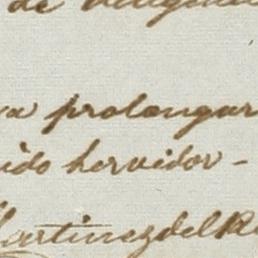 de
va prolongar
ido hervidor-
Martinez del R